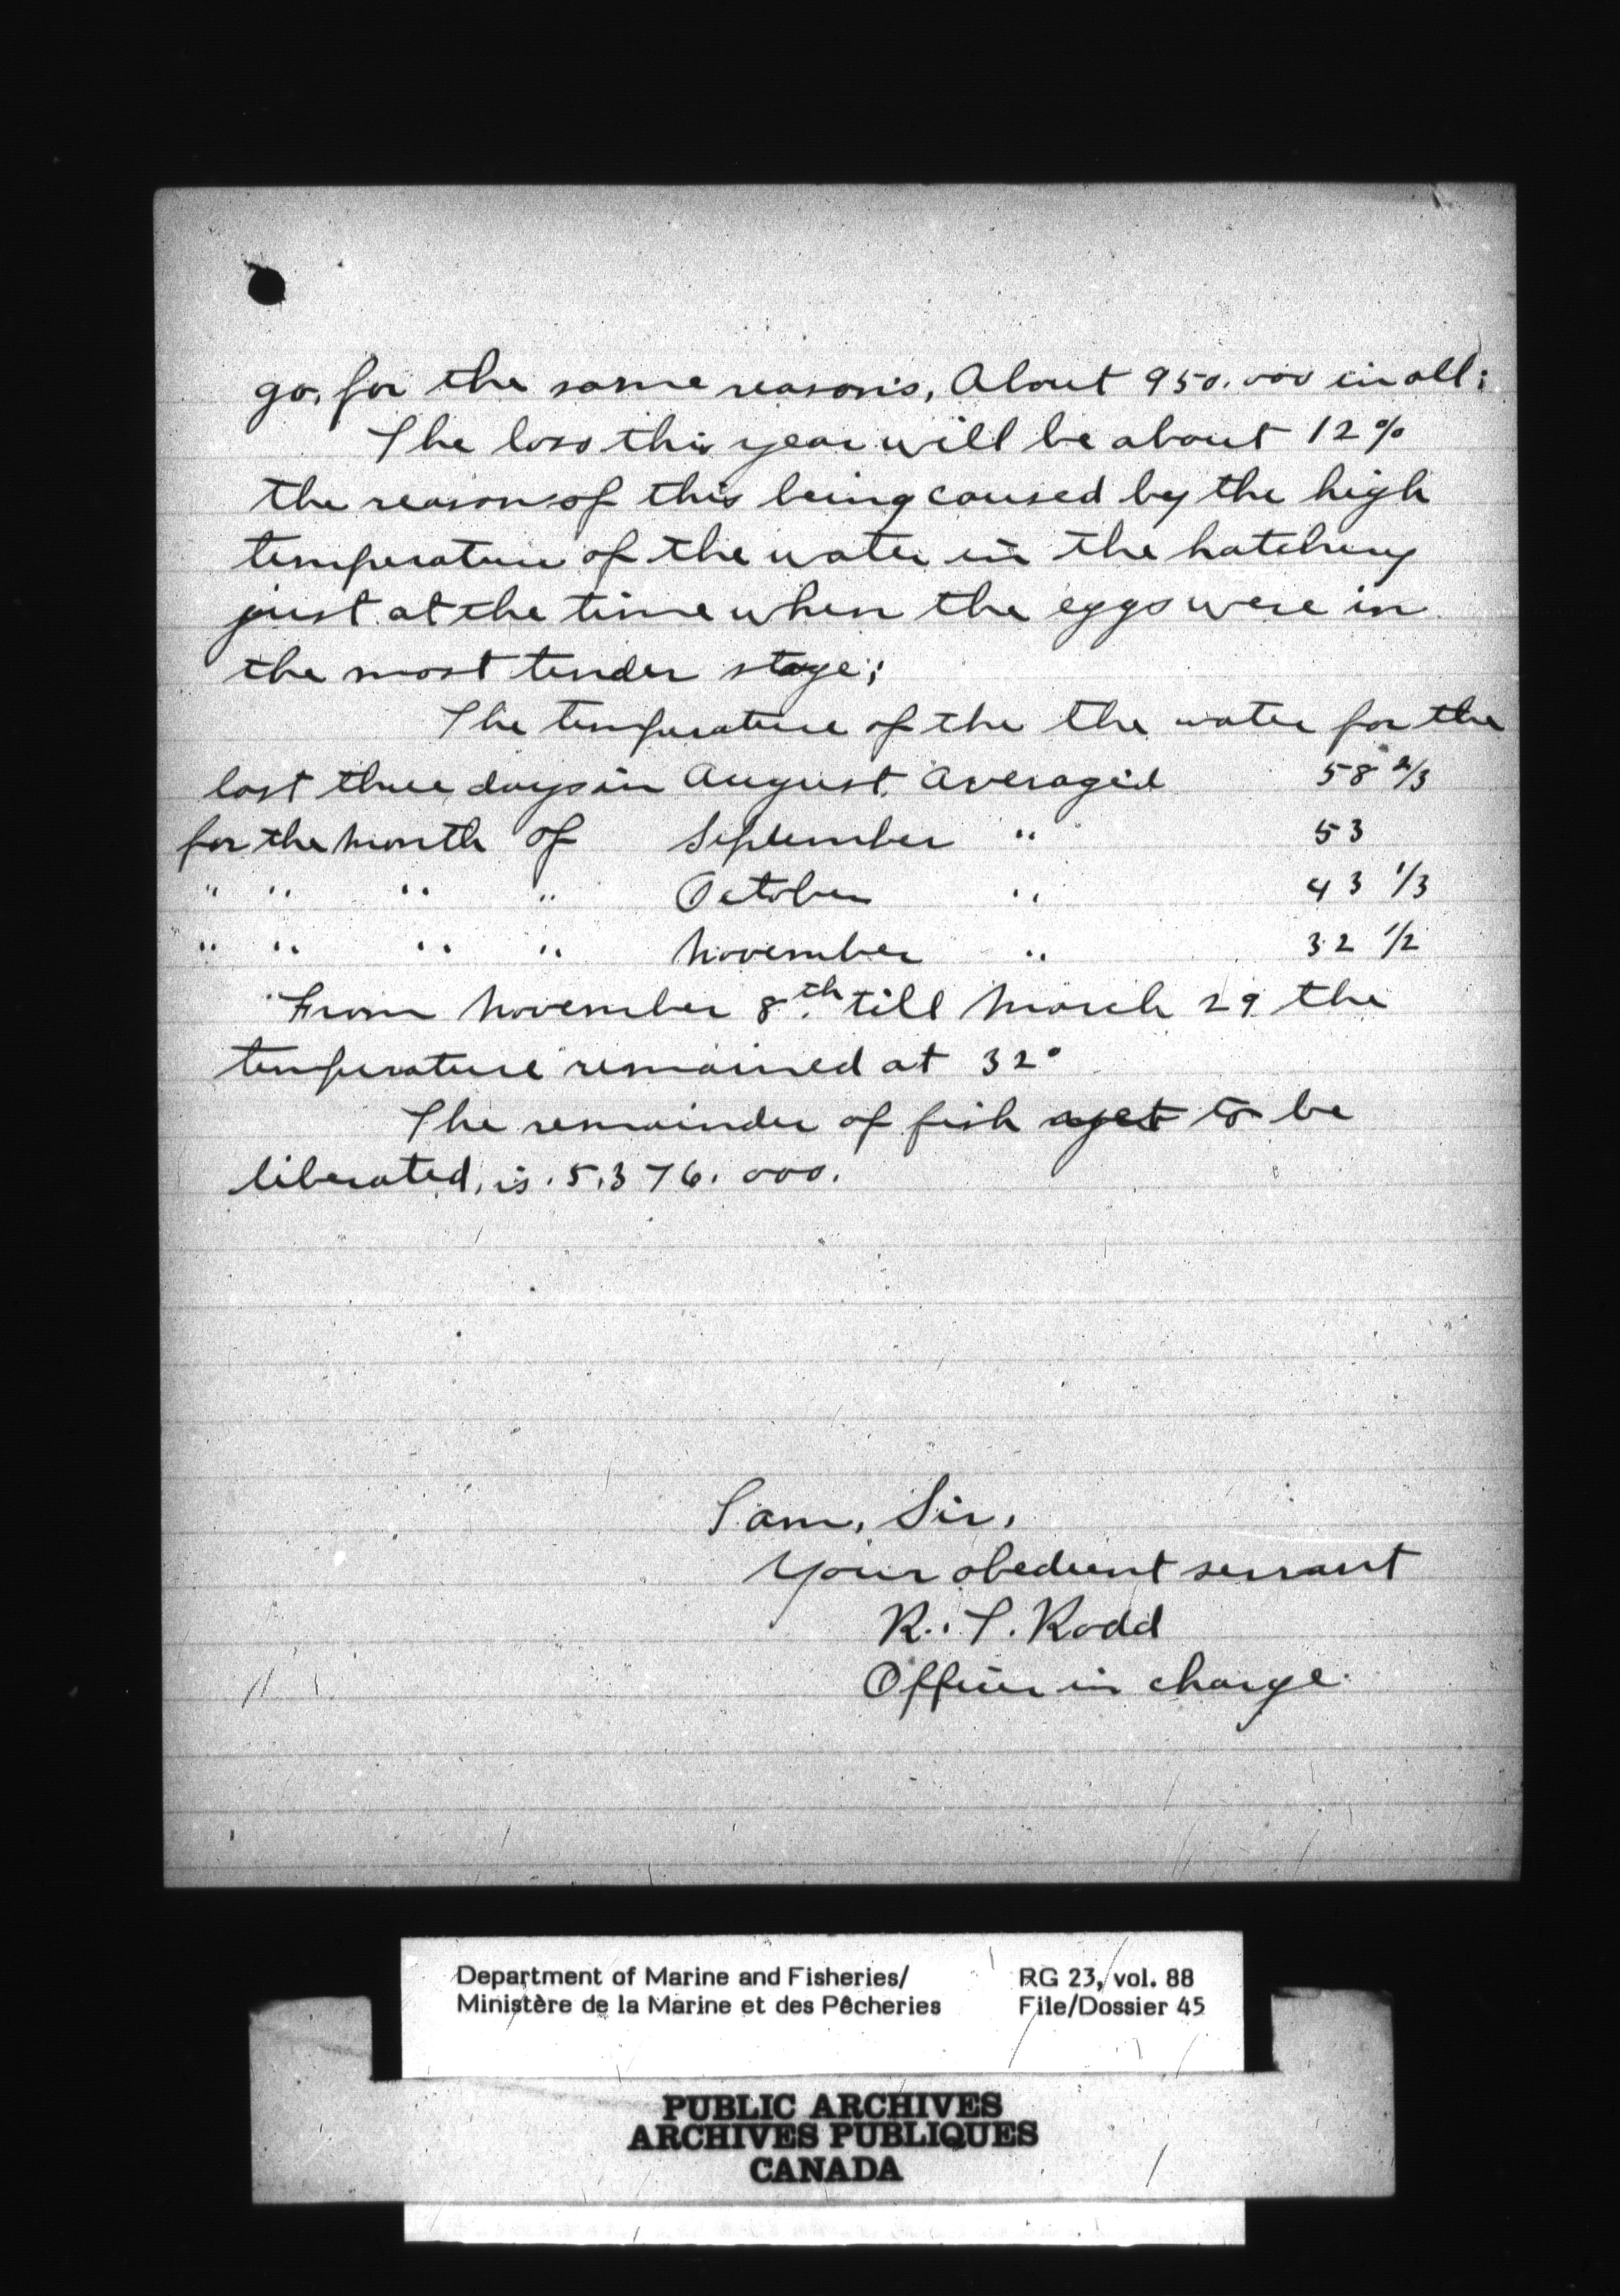 go, for the same reasons, About 950.000 in all;
The loss this year will be about 12%
the reason of this being caused by the high
temperature of the water in the hatchery
just at the time when the eggs were in
the most tender stage;
The temperature of the the water for the
last three days in August. Averaged 58 2/3
for the month of September " 53
" " " " October " 43 1/3
" " " " November " 32 1/2
From November 8th. till March 29 the
temperature remained at 32°
The remainder of fish yet to be
liberated, is. 5.376.000.
I am, Sir,
Your obedient servant
R. T. Rodd
Officer in charge.
Department of Marine and Fisheries/ RG 23, vol. 88
Ministère de la Marine et des Pêcheries File/Dossier 45
PUBLIC ARCHIVES
ARCHIVES PUBLIQUES
CANADA